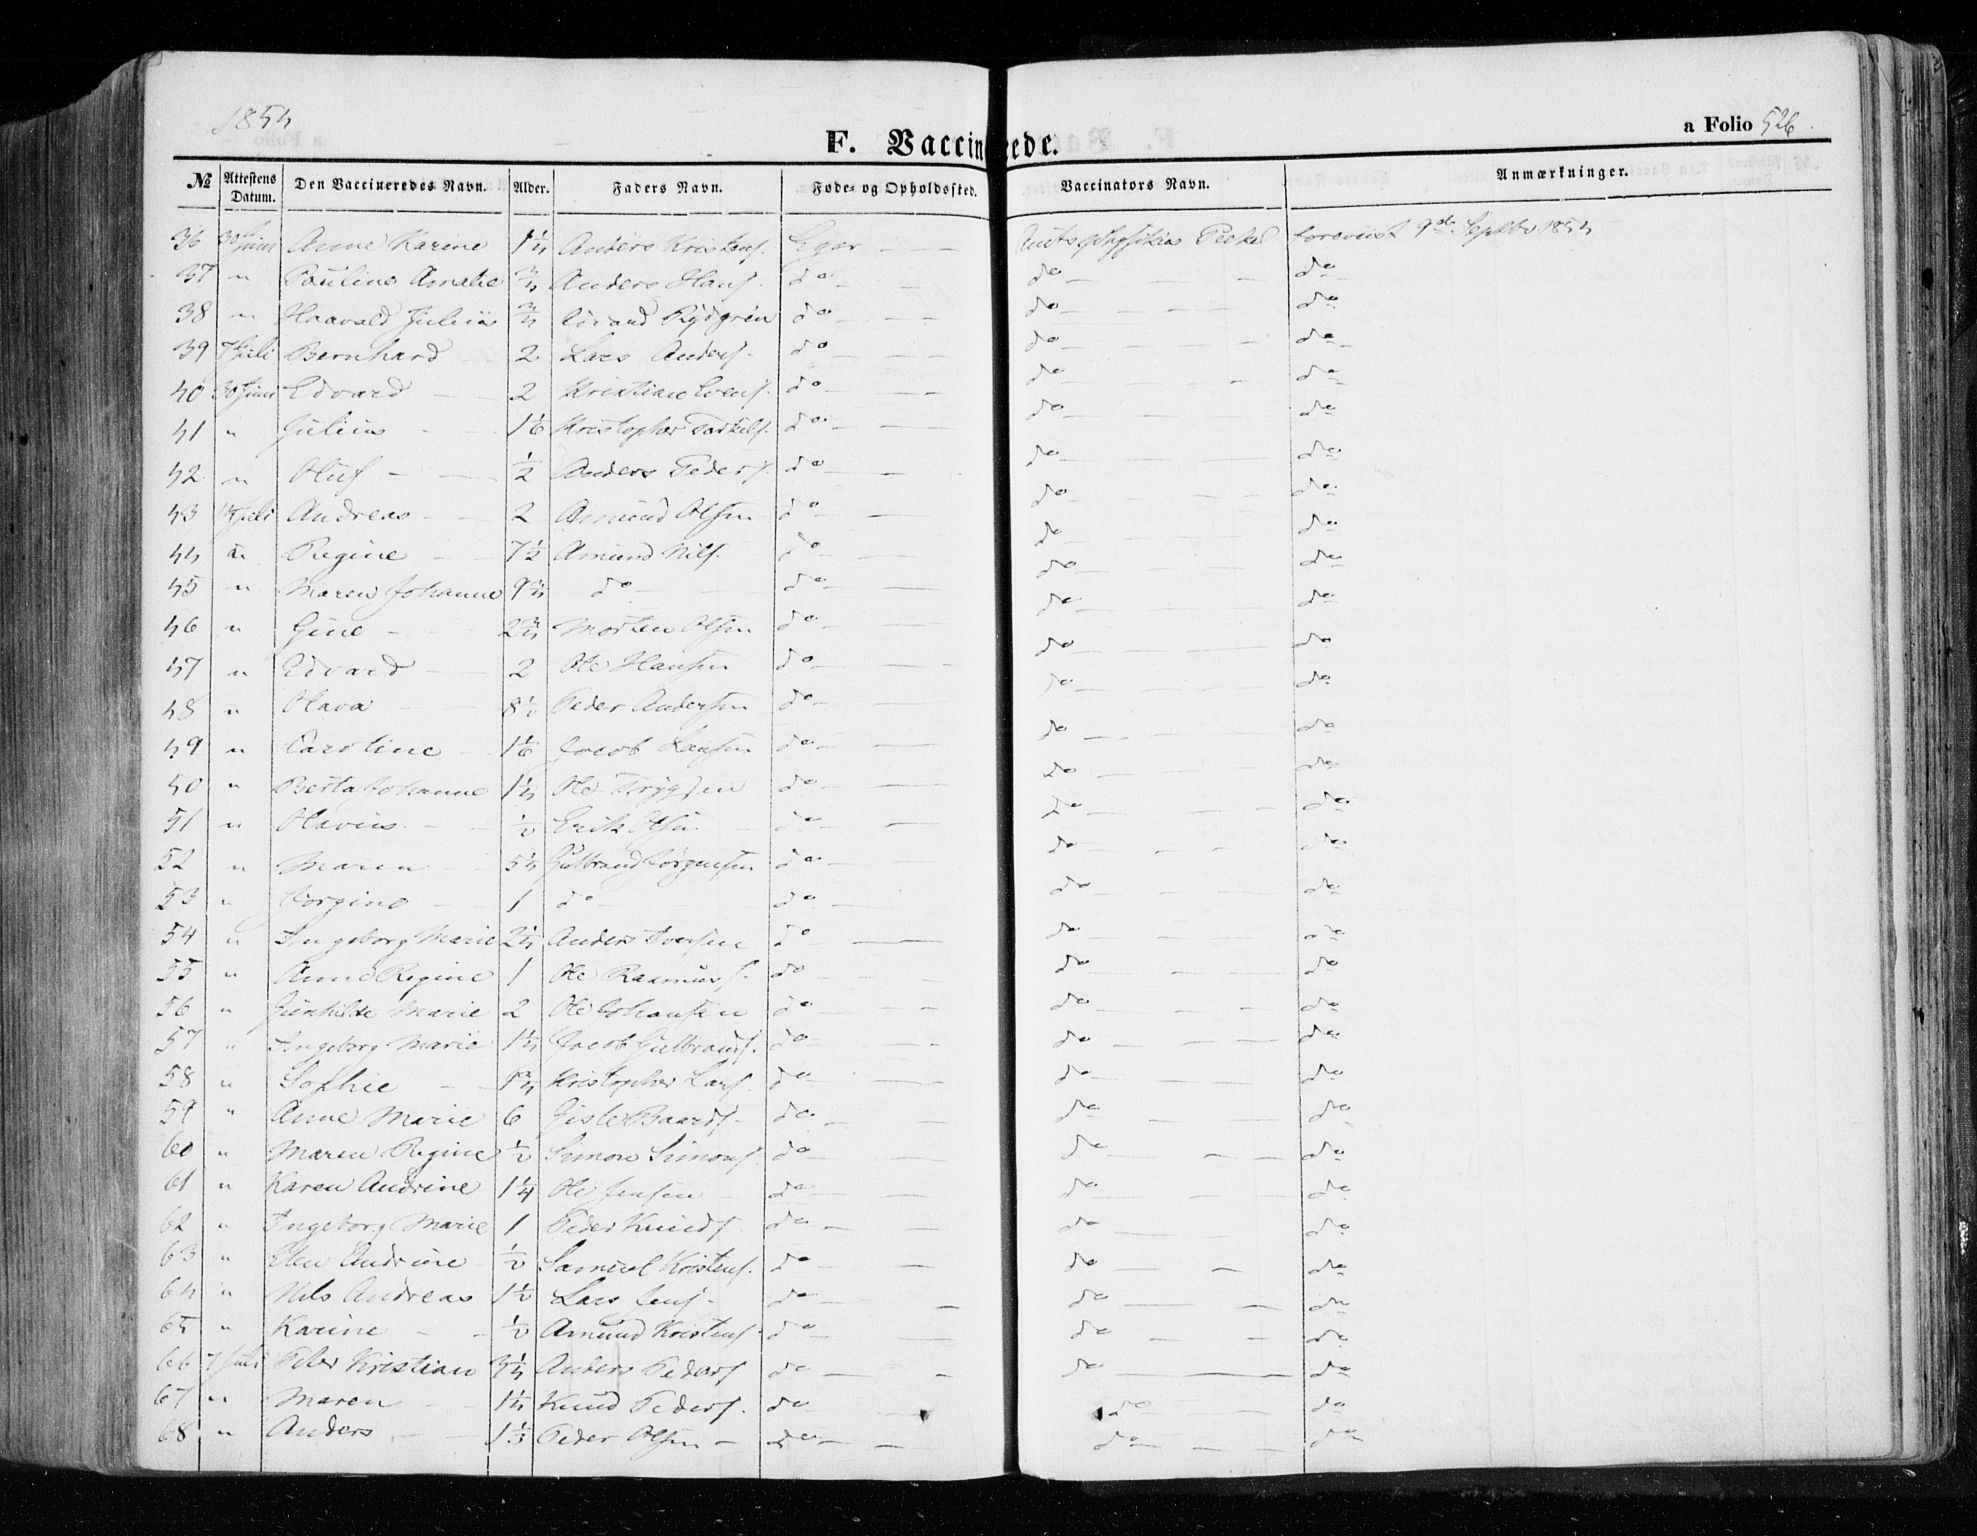 1854
F. Vaccinerede.
a Folio 526.
№ Attestens Datum. Den Vaccineredes Navn. Alder. Faders Navn. Føde- og Opholdssted. Vaccinators Navn. Anmærkninger.
36 30 Juni Anne Karine 1 1/4 Anders Kristens. Eger — — Amtsphysikus foreviist 9de Septbr 1854
37 " Pauline Amalie 3/4 Anders Hans. do — do — do
38 " Haavald Julius 3/4 Edvard Rydgren do — do — do
39 7 Juli Bernhard 2 Lars Anders. do — do — do
40 30 Juni Edvard 2 Kristian Evens. do — do — do
41 " Julius 1/6 Kristopher Torkels. do — do — do
42 " Oluf 1/2 Anders Peders. do — do — do
43 14 Juli Andreas 2 Amund Olsen do — do — do
44 " Regine 7 1/2 Amund Nils. do — do — do
45 " Maren Johanne 9 3/4 do do — do — do
46 " Gine 2 3/4 Morten Olsen do — do — do
47 " Edvard 2 Ole Hansen do — do — do
48 " Olava 8 1/2 Peder Andersen do — do — do
49 " Caroline 1 1/6 Jacob Larsen do — do — do
50 " Berta Johanne 1 1/4 Ole Trygsen do — do — do
51 " Olavius 1/2 Erik Olsen do — do — do
52 " Maren 5 1/4 Gulbrand Jørgensen do — do — do
53 " Jorgine 1 do do — do — do
54 " Ingeborg Marie 2 1/4 Anders Iversen do — do — do
55 " Anne Regine 1 Ole Rasmuss. do — do — do
56 " Gunhilde Marie 2 Ole Johansen do — do — do
57 " Ingeborg Marie 1 1/4 Jacob Gulbrands. do — do — do
58 " Sophie 1 3/4 Kristopher Lars. do — do — do
59 " Anne Marie 6 Gisle Baards. do — do — do
60 " Maren Regine 1/2 Simon Simons. do — do — do
61 " Karen Andrine 1 1/4 Ole Jensen do — do — do
62 " Ingeborg Marie 1 Peder Knuds. do — do — do
63 " Elen Andrine 1/2 Samuel Kristens. do — do — do
64 " Nils Andreas 1 1/2 Lars Jens. do — do — do
65 " Karine 1/2 Amund Kristens. do — do — do
66 7 Juli Peter Kristian 3 1/4 Anders Peders. do — do — do
67 " Maren 1 1/4 Knud Peders. do do — do
68 " Anders 1 1/3 Peder Olsen do — do — do